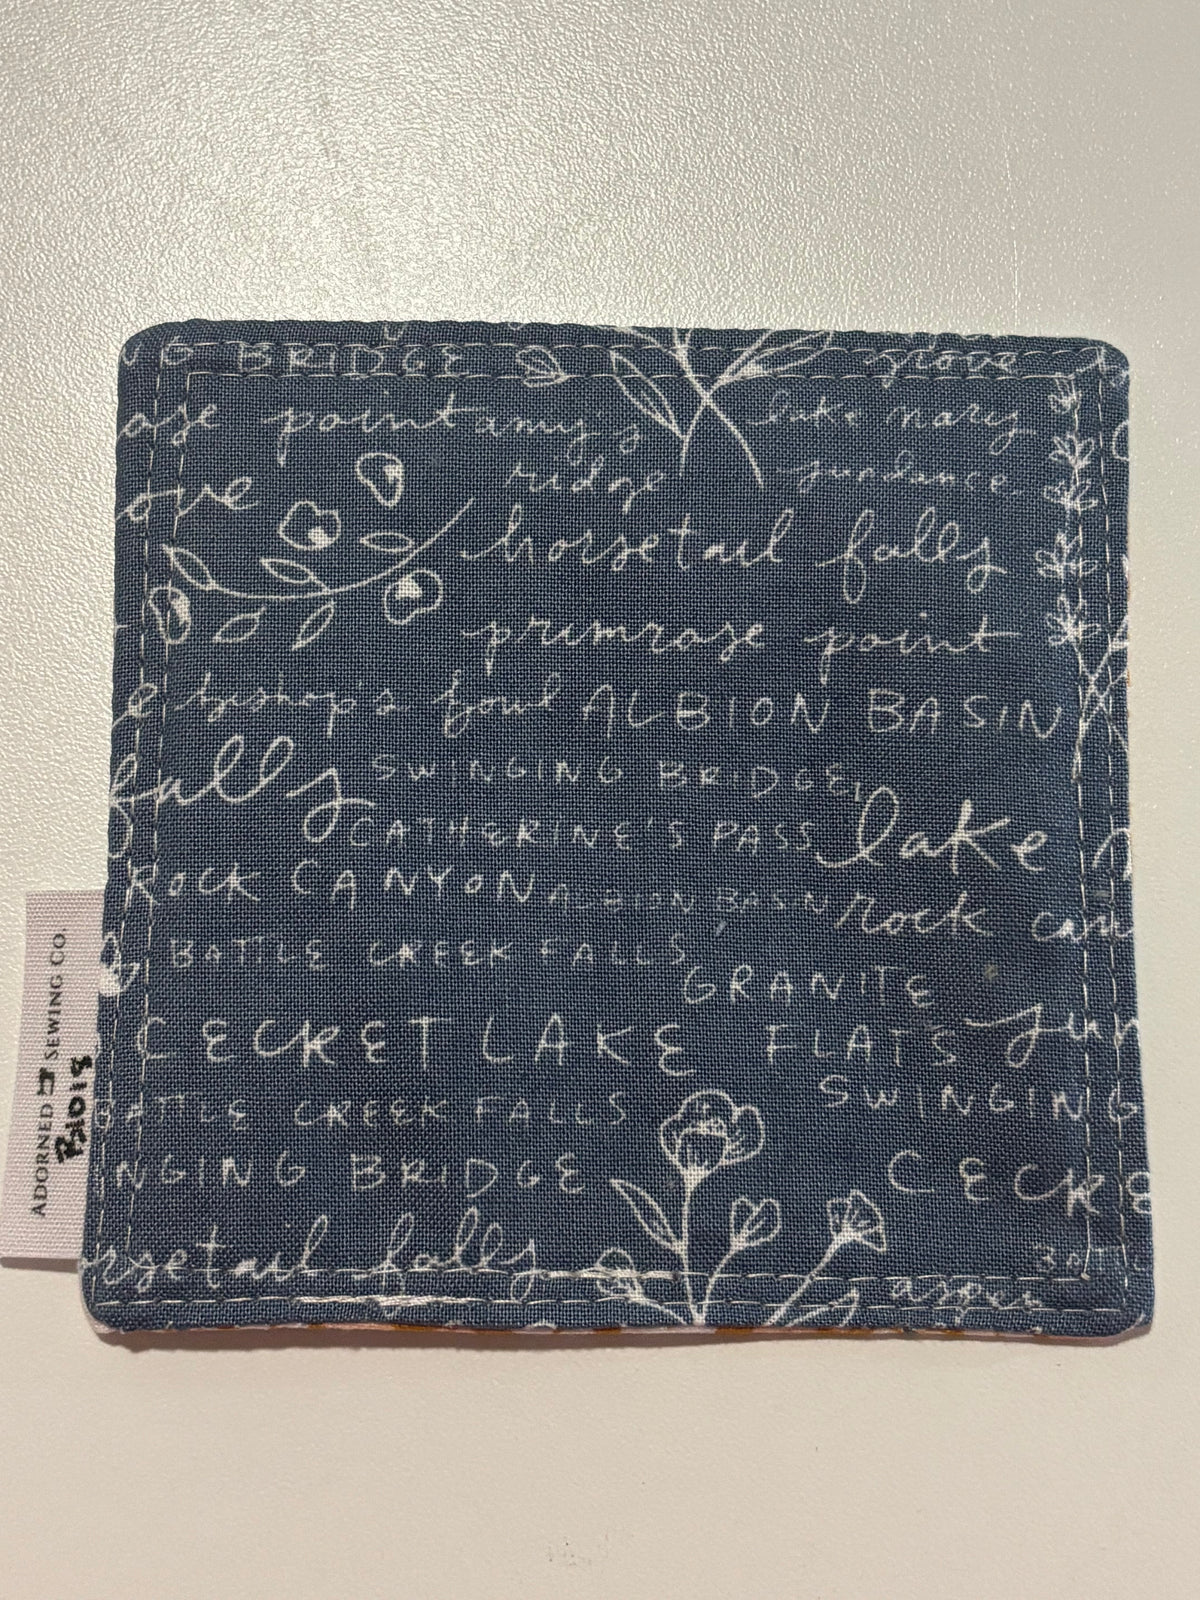 NG BRIDGE grove
ose point amy's lake mary
ove ridge sundance
horsetail falls
primrose point
bishop's bowl ALBION BASIN
falls SWINGING BRIDGE
CATHERINE'S PASS lake
ROCK CANYON ALBION BASIN rock can
BATTLE CREEK FALLS
GRANITE
CECRET LAKE FLATS sun
BATTLE CREEK FALLS SWINGING
NGING BRIDGE CECRE
rsetail falls BATT
aspen
ADORNED SEWING CO.